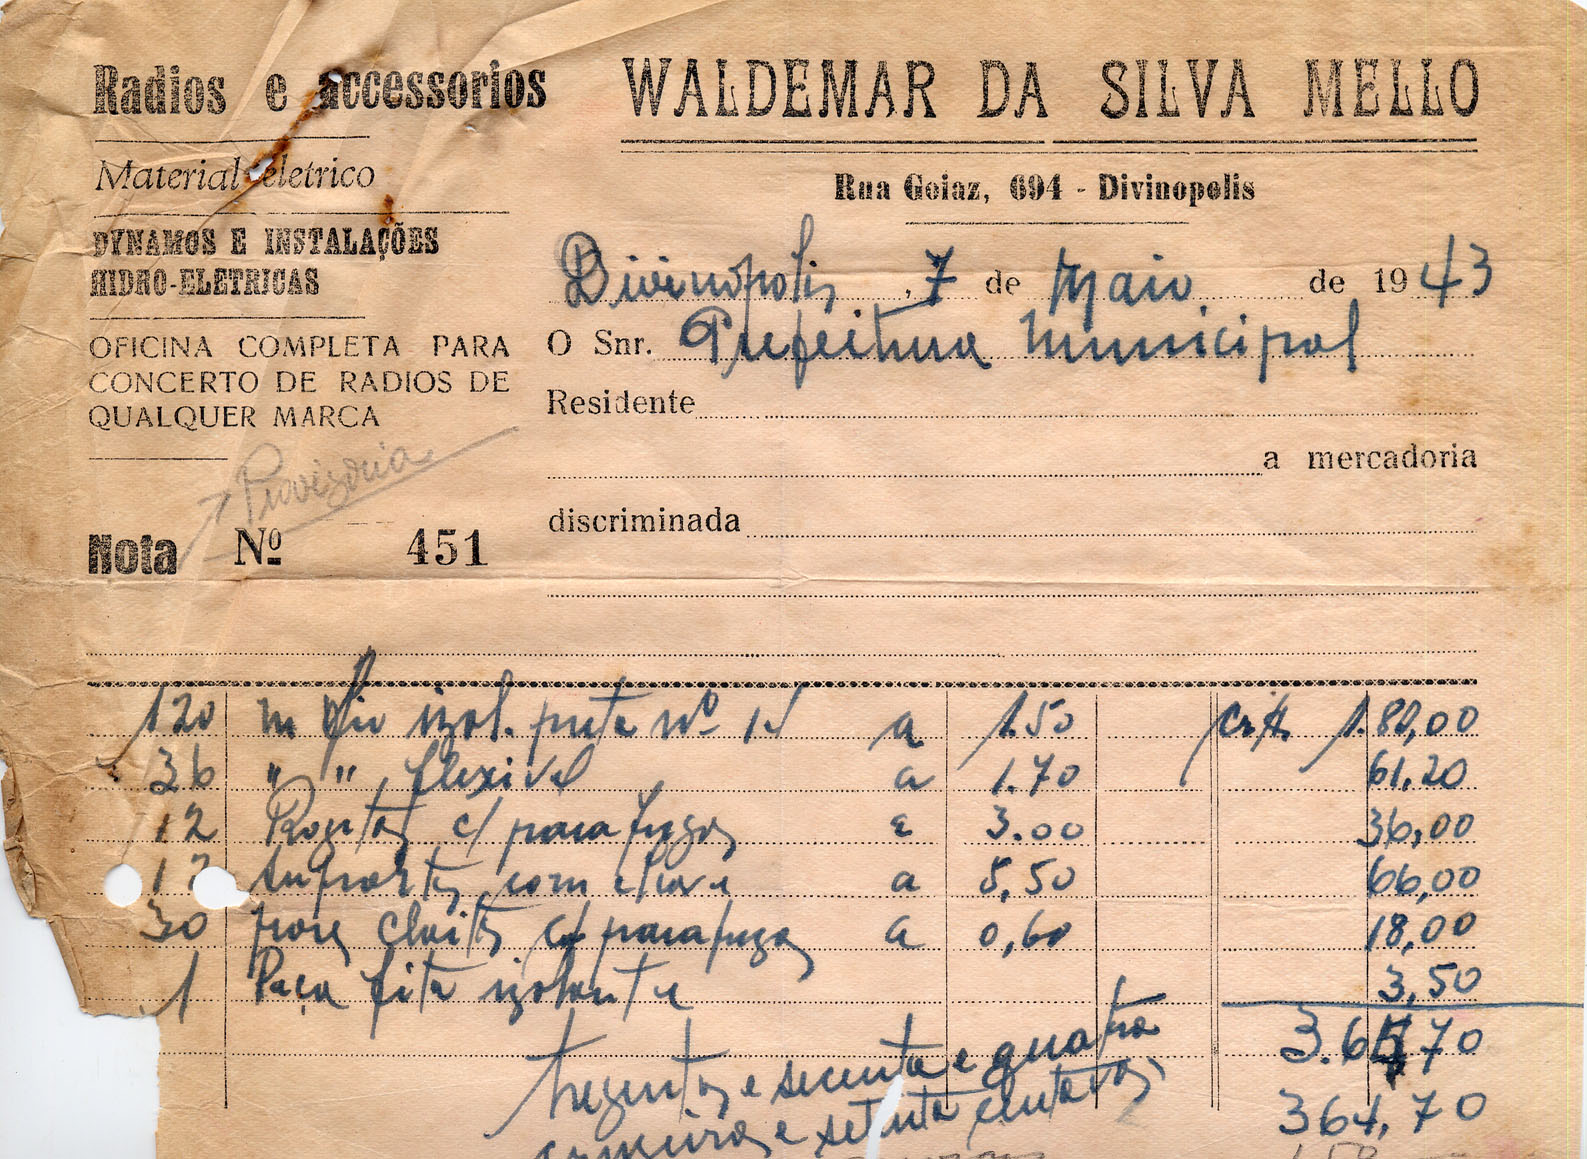 Radios e accessorios
Material eletrico
DYNAMOS E INSTALAÇÕES
HIDRO-ELETRICAS
OFICINA COMPLETA PARA
CONCERTO DE RADIOS DE
QUALQUER MARCA
Provisoria
Nota Nº 451
WALDEMAR DA SILVA MELLO
Rua Goiaz, 694 - Divinopolis
Divinópolis, 7 de Maio de 1943
O Snr. Prefeitura Municipal
Residente
a mercadoria
discriminada
120 m Fio izol. preto nº 14 a 1.50 Cr$. 180,00
36 " " flexivel a 1.70 61,20
12 Rozetas c/ parafuzos a 3.00 36,00
12 Suportes com chave a 5,50 66,00
30 pares cleites c/ parafuzos a 0,60 18,00
1 Peça fita izolante 3,50
trezentos e secenta e quatro 3.64,70
cruzeiros e setenta centavos 364,70